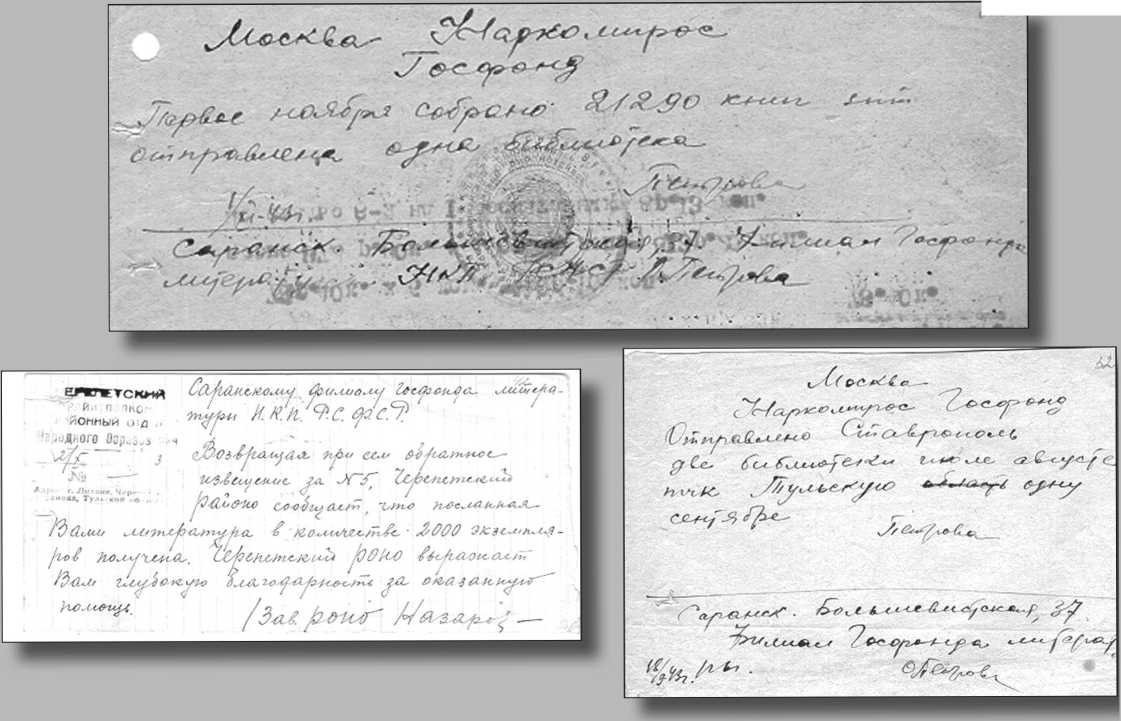 Москва Наркомпрос
Госфонд
Первое ноября собрано 21290 книг зпт
отправлена одна библиотека
Петрова
1/XI-43г.
Саранск. Большевистская, 37 Филиал Госфонда
литературы НКП РСФСР Петрова
ЧЕРЕПЕТСКИЙ
РАЙИСПОЛКОМ
РАЙОННЫЙ ОТДЕЛ
Народного Образования
№
Саранскому филиалу госфонда литера-
туры Н.К.П. Р.С.Ф.С.Р.
Возвращая при сем обратное
извещение за №5, Черепетский
районо сообщает, что посланная
Вами литература в количестве 2000 экземпля-
ров получена. Черепетский роно выражает
Вам глубокую благодарность за оказанную
помощь.
/Зав роно
52
Москва
Наркомпрос Госфонд
Отправлено Ставрополь
две библиотеки июле августе
тчк Тульскую область одну
сентябре
Петрова
Саранск. Большевистская, 37.
Филиал Госфонда литерат
ры.
18/9 43г.
Петрова